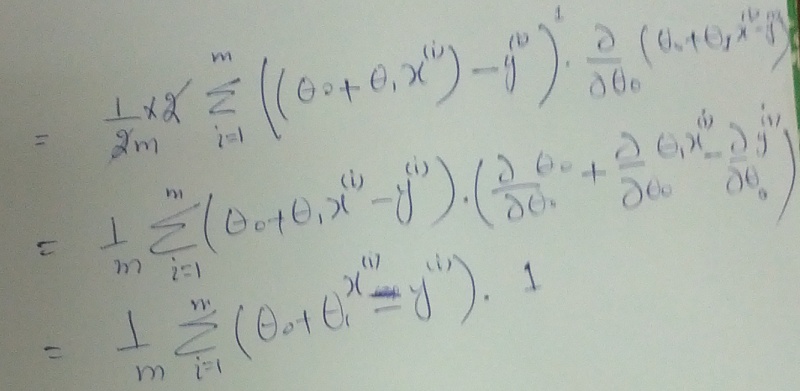 = 1/2m × 2 Σ_{i=1}^{m} ((θ₀ + θ₁ x^(i)) − y^(i))^1 · ∂/∂θ₀ (θ₀ + θ₁ x^(i) − y^(i))
= 1/m Σ_{i=1}^{m} (θ₀ + θ₁ x^(i) − y^(i)) · (∂/∂θ₀ θ₀ + ∂/∂θ₀ θ₁ x^(i) − ∂/∂θ₀ y^(i))
= 1/m Σ_{i=1}^{m} (θ₀ + θ₁ x^(i) − y^(i)) · 1